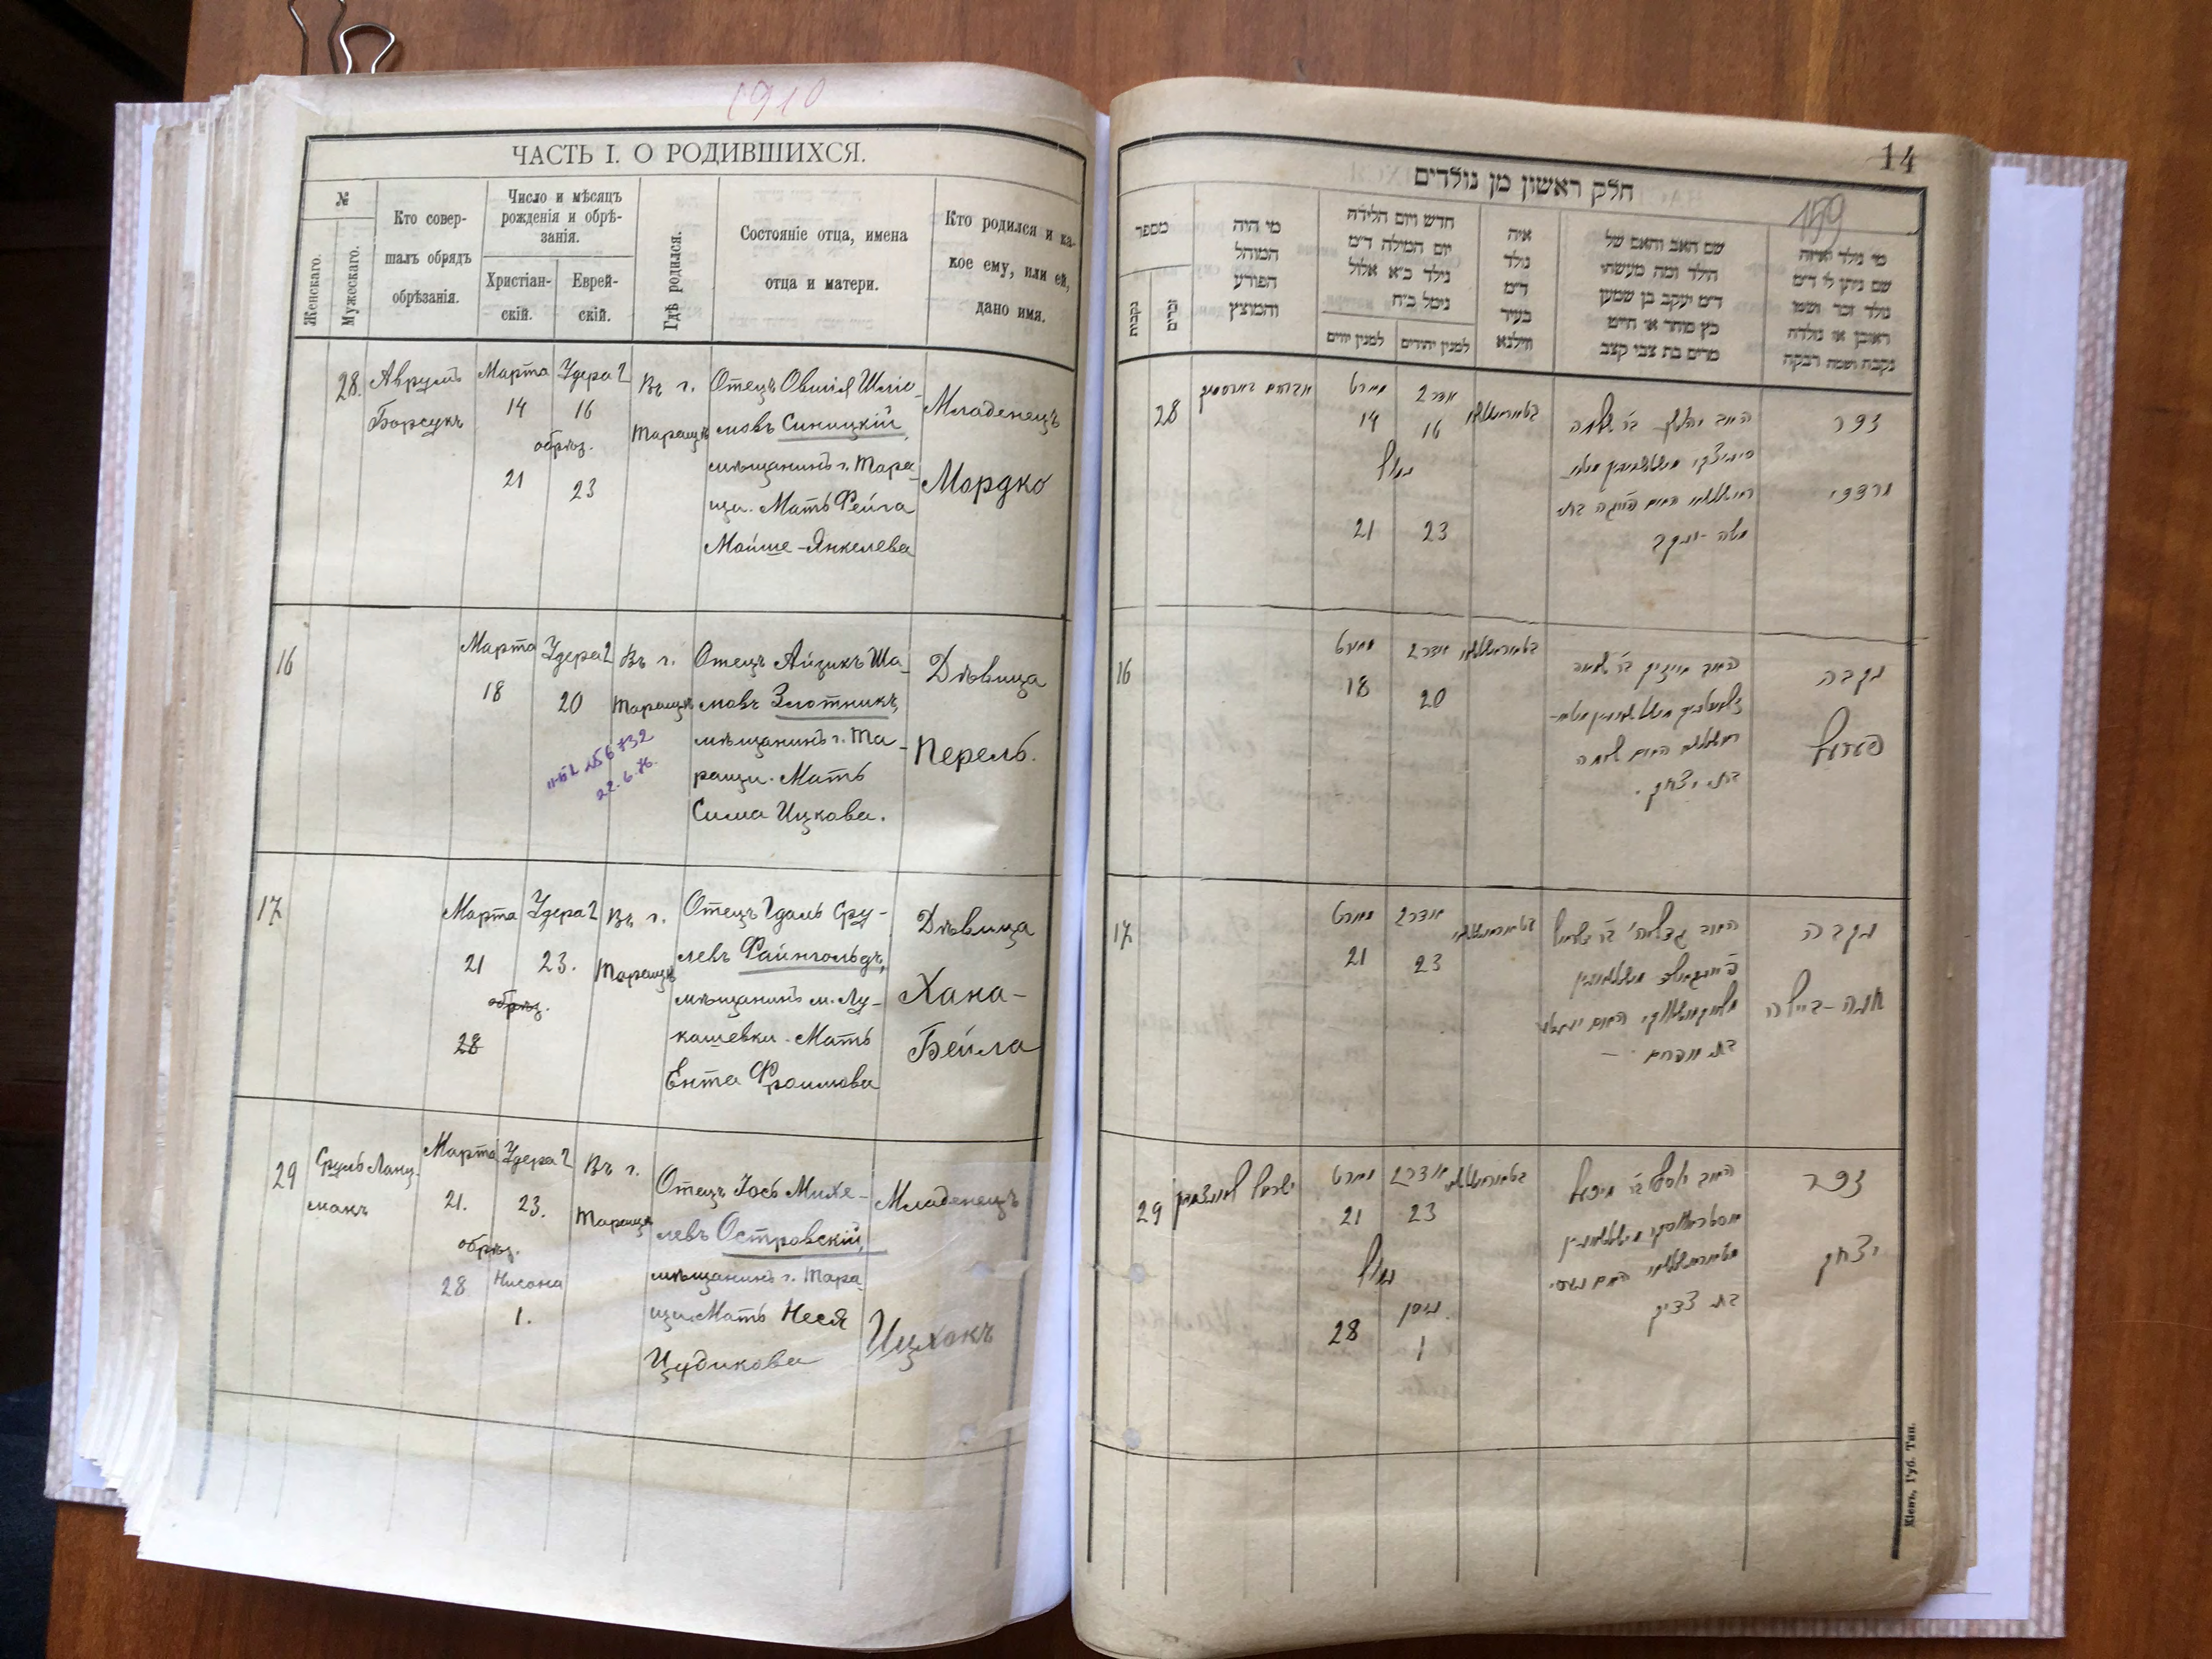 1910
ЧАСТЬ I. О РОДИВШИХСЯ.
№
Женскаго.
Мужескаго.
Кто совер-
шалъ обрядъ
обрѣзанія.
Число и мѣсяцъ
рожденія и обрѣ-
занія.
Христіан-
скій.
Еврей-
скій.
Гдѣ родился.
Состояніе отца, имена
отца и матери.
Кто родился и ка-
кое ему, или ей,
дано имя.
28.
Аврумъ
Борсукъ
Марта
14
обрѣз.
21
Удера 2
16
23
Въ г.
Тараще
Отецъ Овшія Шліо-
мовъ Синицкій,
мѣщанинъ г. Тара-
щи. Мать Фейга
Мойше-Янкелева
Младенецъ
Мордко
16
Марта
18
Удера 2
20
22.6.76.
Въ г.
Тараще
Отецъ Айзикъ Ша-
мовъ Злотникъ,
мѣщанинъ г. Та-
ращи. Мать
Сима Ицкова.
Дѣвица
Перель.
17
Марта
21
обрѣз.
28
Удера 2
23.
Въ г.
Тараще
Отецъ Гдаль Сру-
левъ Файнгольдъ,
мѣщанинъ м. Лу-
кашевки. Мать
Ента Фроимова
Дѣвица
Хана-
Бейла
29
Сруль Ланц-
манъ
Марта
21.
обрѣз.
28
Удера 2
23.
Нисана
1.
Въ г.
Тараще
Отецъ Іось Михе-
левъ Островскій,
мѣщанинъ г. Тара-
щи. Мать Неся
Цудикова
Младенецъ
Ицхокъ
14
159
חלק ראשון מן נולדים
מספר
נקבות
זכרים
מי היה
המוהל
הפורע
והמוצץ
חדש ויום הלידה
יום המילה ד״מ
נילד כ״א אלול
נימל כ״ח
למנין יוונים
למנין יהודים
איה
נולד
ד״מ
בעיר
ווילנא
שם האב והאם של
הילד ומה מעשהו
ד״מ יעקב בן שמען
כץ סוחר או חייט
מרים בת צבי קצב
מי נולד ואיזה
שם ניתן לו ד״מ
נולד זכר ושמו
ראובן או נולדה
נקבה ושמה רבקה
28
מארט
14
נמול
21
אדר 2
16
23
זכר
מרדכי
משה-יעקב
16
מארט
18
אדר 2
20
בת יצחק.
נקבה
פערעל
17
מארט
21
אדר 2
23
בת אפרים
נקבה
חנה-ביילה
29
ישראל לאנצמאן
מארט
21
נמול
28
אדר 2
23
ניסן
1
זכר
יצחק
Кіевъ, Губ. Тип.